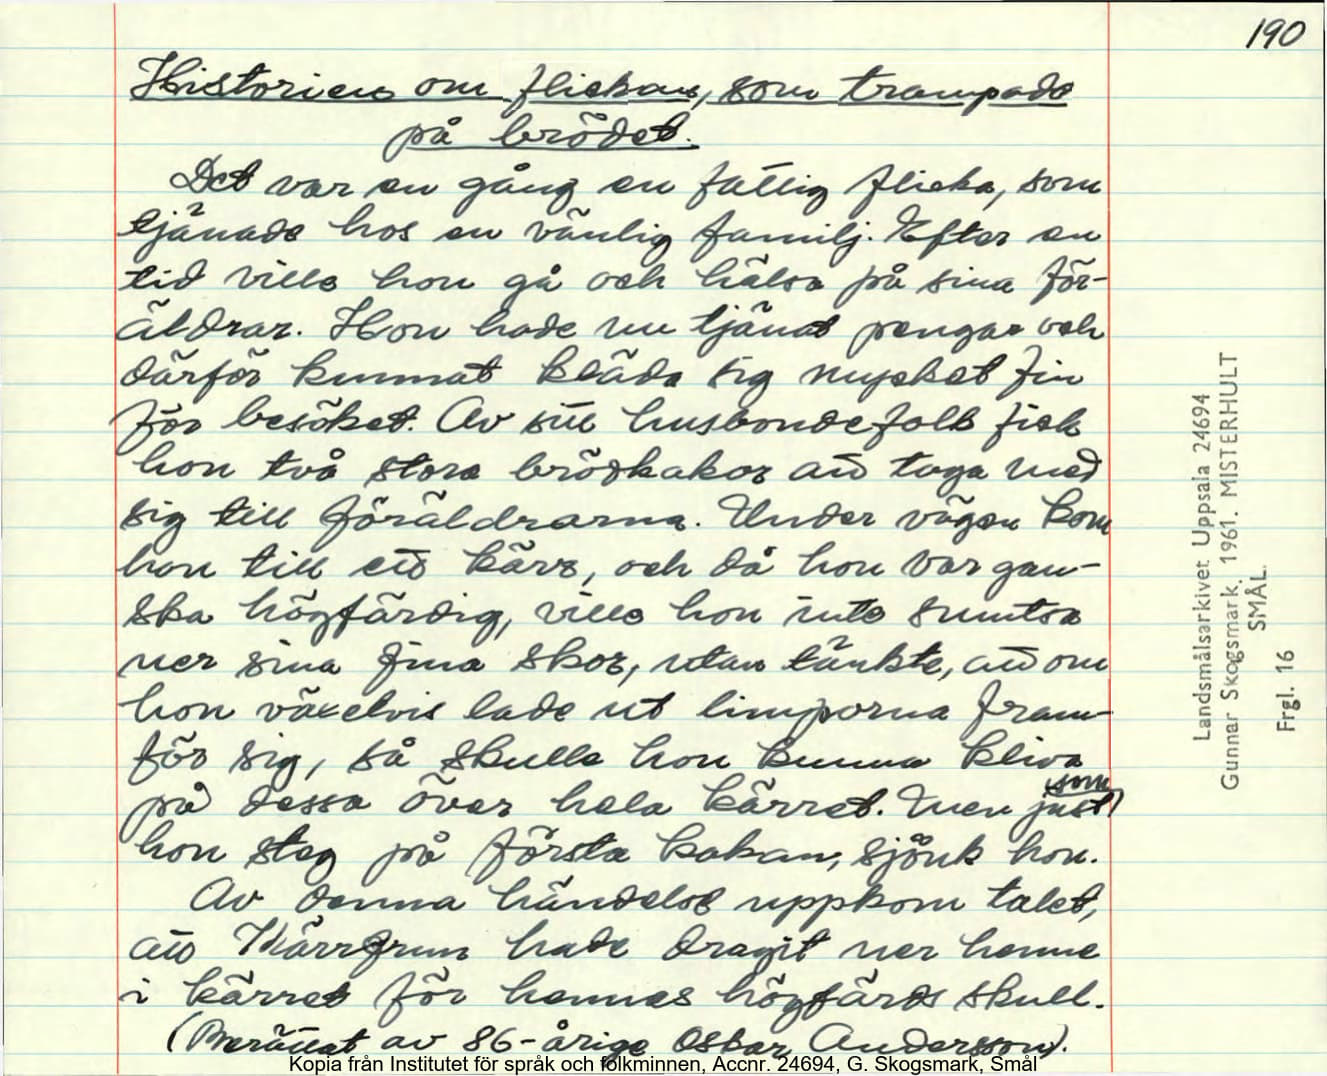 190
Historien om flickan, som trampade
på brödet.
Det var en gång en fattig flicka, som
tjänade hos en vänlig familj. Efter en
tid ville hon gå och hälsa på sina för-
äldrar. Hon hade nu tjänat pengar och
därför kunnat kläda sig mycket fin
för besöket. Av sitt husbondefolk fick
hon två stora brödkakor att taga med
sig till föräldrarna. Under vägen kom
hon till ett kärr, och då hon var gan-
ska högfärdig, ville hon inte smutsa
ner sina fina skor, utan tänkte, att om
hon växelvis lade ut limporna fram-
för sig, så skulle hon kunna kliva
på dessa över hela kärret. Men just som
hon steg på första kakan, sjönk hon.
Av denna händelse uppkom talet,
att Kärrfrun hade dragit ner henne
i kärret för hennes högfärds skull.
(Berättat av 86-årige Oskar Andersson).
Landsmålsarkivet Uppsala 24694
Gunnar Skogsmark. 1961. MISTERHULT
SMÅL.
Frgl. 16
Kopia från Institutet för språk och folkminnen, Accnr. 24694, G. Skogsmark, Smål